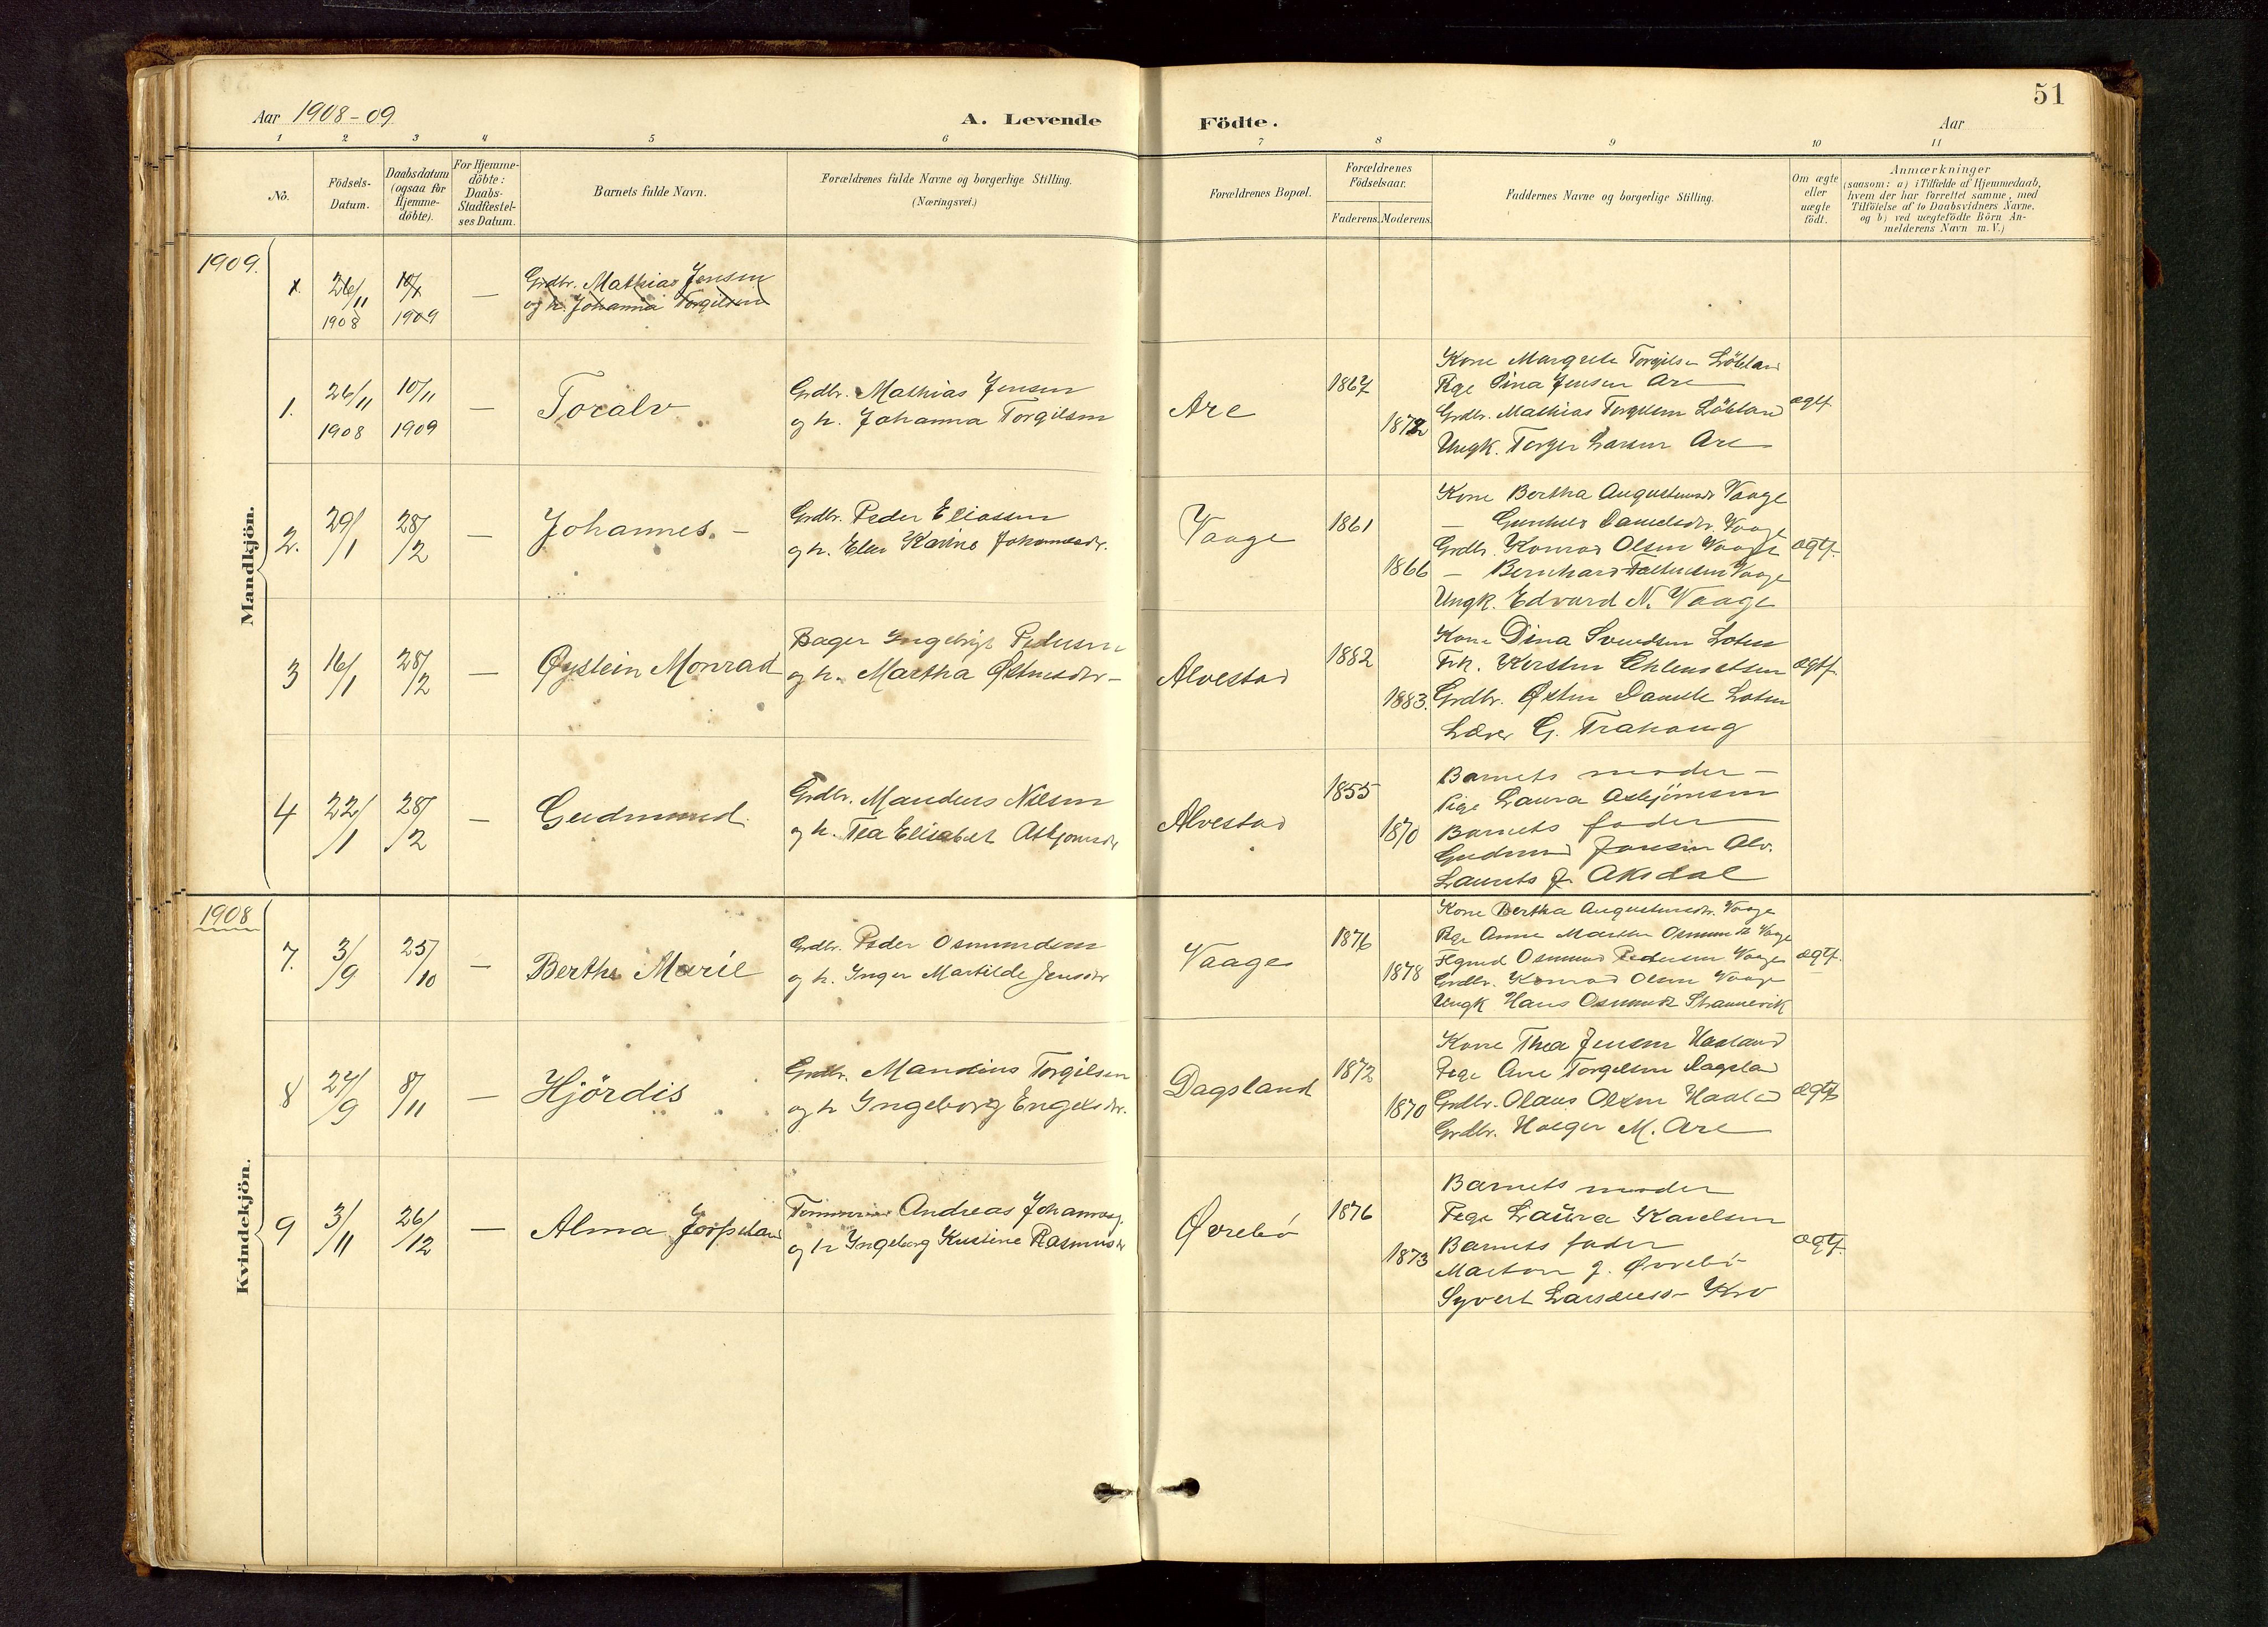 51
Aar 1908-09
A. Levende
Födte.
Aar
1 2 3 4 5 6 7 8 9 10 11
No.
Födsels-
Datum.
Daabsdatum
(ogsaa for
Hjemme-
döbte).
For Hjemme-
döbte:
Daabs-
Stadfestel-
ses Datum.
Barnets fulde Navn.
Forældrenes fulde Navne og borgerlige Stilling.
(Næringsvei.)
Forældrenes Bopæl.
Forældrenes
Födselsaar.
Faderens. Moderens.
Faddernes Navne og borgerlige Stilling.
Om ægte
eller
uægte
födt.
Anmærkninger
(saasom: a) i Tilfælde af Hjemmedaab,
hvem der har forrettet samme, med
Tilföielse af to Daabsvidners Navne,
og b) ved uægtefödte Börn An-
melderens Navn m. V.)
Mandkjön.
1909.
1. 26/11 1908 10/1 1909 —
Grdbr. Mathias Jensen
og h. Johanna Torgilsen
1. 26/11 1908 10/11 1909 — Toralv
Grdbr. Mathias Jensen
og h. Johanna Torgilsen
Are 1867 1872
Kone Margrete Torgilsen
Pige Sina Jensen Are
Grdbr. Mathias Torgilsen
Ungk. Torger Larsen Are
ægtf.
2. 29/1 28/2 — Johannes. —
Grdbr. Peder Eliassen
og h. Elen Karine Johannesdr.
Vaage 1861 1866
Kone Bertha Augustinusdr Vaage
— Danielsdr. Vaage
Grdbr. Konrad Olsen Vaage
— Bernhard Vaage
Ungk. Edvard N. Vaage
ægtf.
3 16/1 28/2 — Øystein Monrad
Bager Ingebrigt Pedersen
og h. Martha Østensdr —
Alvestad 1882 1883.
Kone Dina Svendsen Loten
Frk. Kirsten
Grdbr. Østen Loten
Lærer G.
ægtf.
4 22/1 28/2 — Gudmund.
Grdbr. Mandius Nilsen
og h. Tea Elisabet Asbjornsdr
Alvestad 1855 1870
Barnets moder —
Pige Laura Asbjörnsen
Barnets fader
Gudmund Jansen Alv.
Laurits J. Aksdal
Kvindekjön.
1908
7. 3/9 25/10 — Berthe Marie
Grdbr. Peder Osmundsen
og h. Inger Martilde Jensdr
Vaage 1876 1878
Kone Bertha Augustinusdr. Vaage
Pige Anne Marthe Osmundsdr Vaage
Osmund Pedersen Vaage
Grdbr. Konrad Olsen Vaage
Ungk Hans Osmunds Strannevik
ægtf.
8 27/9 8/11 — Hjördis
Grdbr. Mandius Torgilsen
og h Ingeborg Engelsdr.
Dagsland 1872 1870
Kone Thea Jensen Haaland
Pige Ane Torgilsen Dagsland
Grdbr. Olaus Olsen Haaland
Grdbr. Holger M. Are
ægtf
9 3/11 26/12 — Alma Jörpeland
Tømmerm. Andreas Johannesg.
og h Ingeborg Kristine Rasmusdr
Øvrebø 1876 1873
Barnets moder
Pige Laura Karelsen
Barnets fader
Marton J. Øvrebø
Syvert
ægtf.